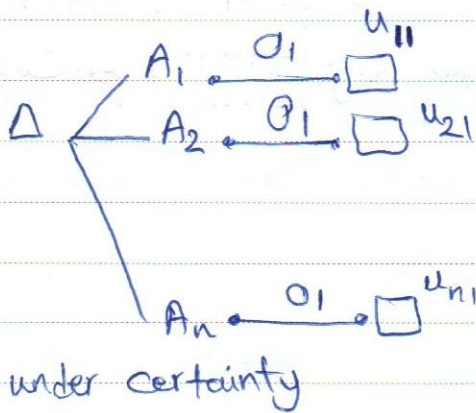 A₁ O₁ u₁₁
Δ A₂ O₁ u₂₁
Aₙ O₁ uₙ₁
under certainty